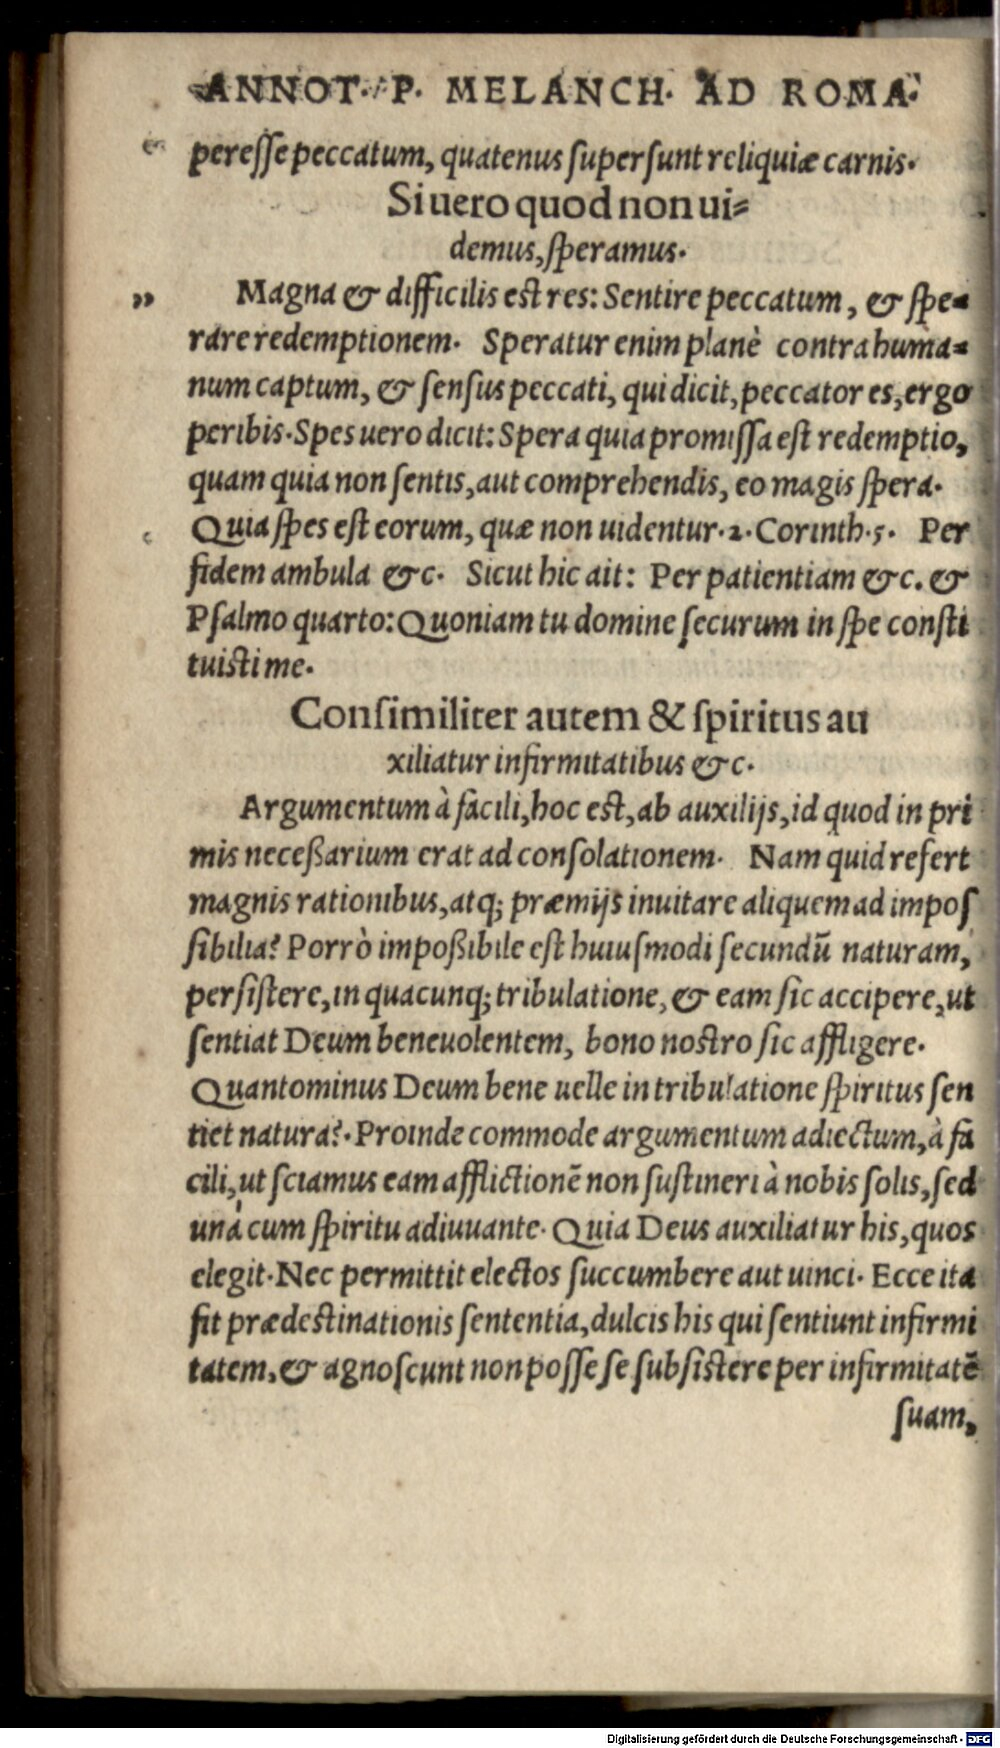 ANNOT. P. MELANCH. AD ROMA.
peresse peccatum, quatenus supersunt reliquiæ carnis.
Si uero quod non ui=
demus, speramus.
„ Magna & difficilis est res: Sentire peccatum, & spe=
rare redemptionem. Speratur enim planè contra huma=
num captum, & sensus peccati, qui dicit, peccator es, ergo
peribis. Spes uero dicit: Spera quia promissa est redemptio,
quam quia non sentis, aut comprehendis, eo magis spera.
Quia spes est eorum, quæ non uidentur. 2. Corinth. 5. Per
fidem ambula &c. Sicut hic ait: Per patientiam &c. &
Psalmo quarto: Quoniam tu domine securum in spe consti
tuisti me.
Consimiliter autem & spiritus au
xiliatur infirmitatibus &c.
Argumentum à facili, hoc est, ab auxilijs, id quod in pri
mis neceßarium erat ad consolationem. Nam quid refert
magnis rationibus, atq; præmijs inuitare aliquem ad impos
sibilia? Porrò impoßibile est huiusmodi secundū naturam,
persistere, in quacunq; tribulatione, & eam sic accipere, ut
sentiat Deum beneuolentem, bono nostro sic affligere.
Quantominus Deum bene uelle in tribulatione spiritus sen
tiet natura?. Proinde commode argumentum adiectum, à fa
cili, ut sciamus eam afflictionē non sustineri à nobis solis, sed
unà cum spiritu adiuuante. Quia Deus auxiliatur his, quos
elegit. Nec permittit electos succumbere aut uinci. Ecce ita
fit prædestinationis sententia, dulcis his qui sentiunt infirmi
tatem, & agnoscunt non posse se subsistere per infirmitatē
suam,
Digitalisierung gefördert durch die Deutsche Forschungsgemeinschaft - DFG